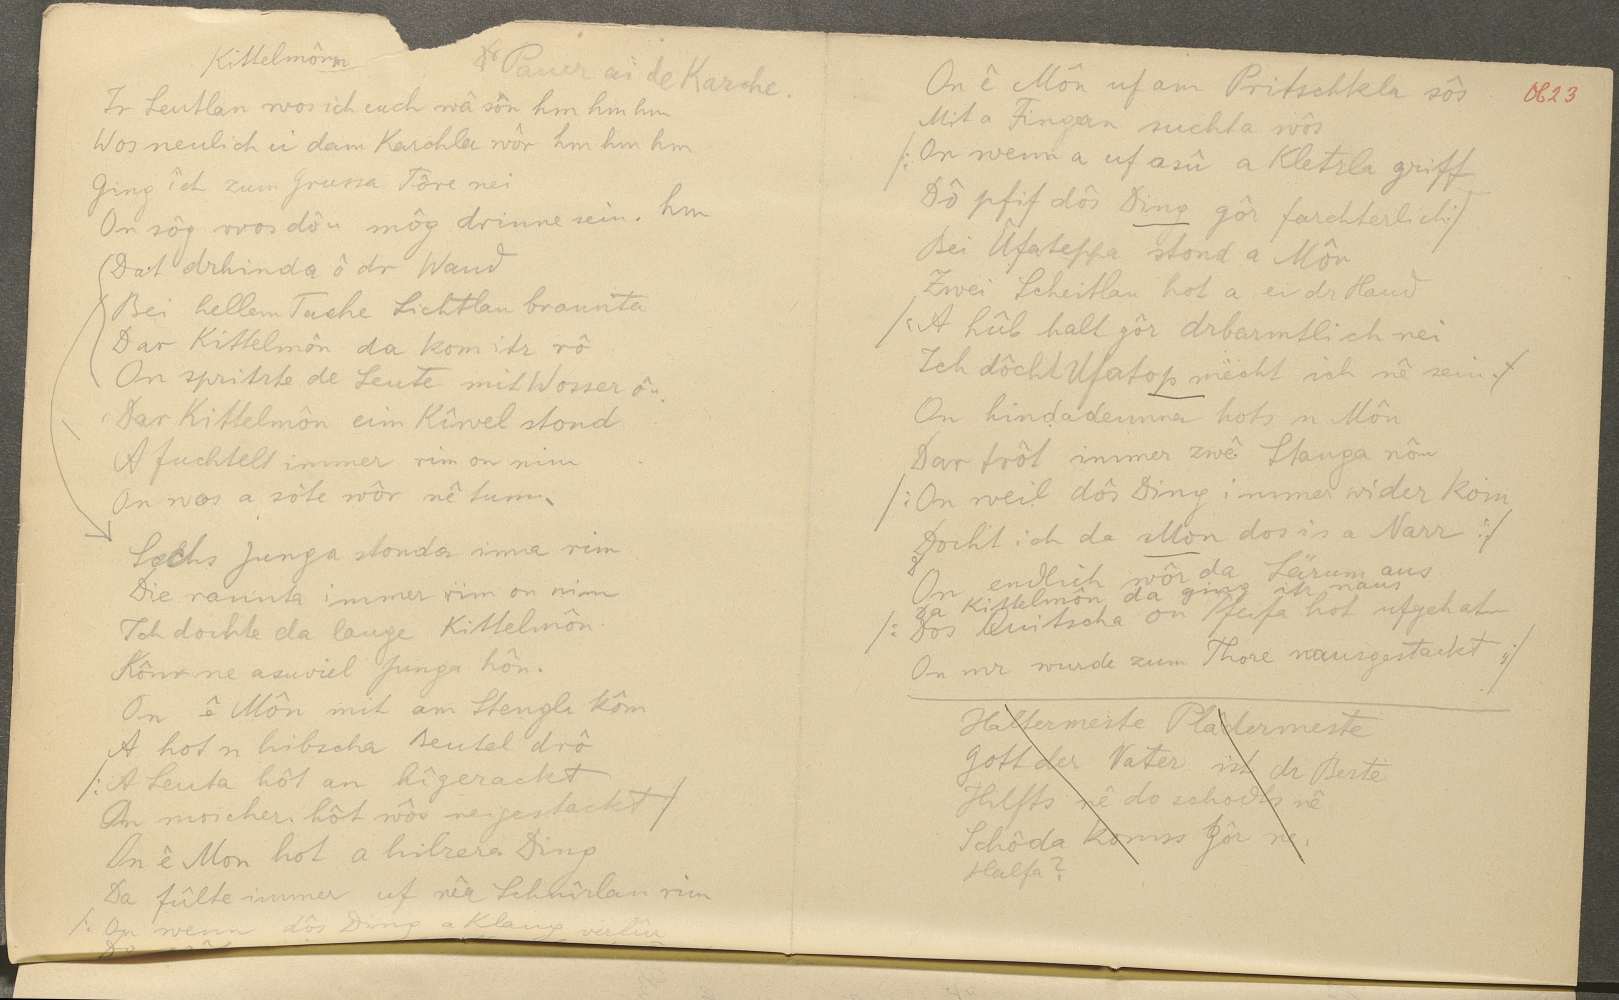 Kittelmôn
Dr Pauer ai de Karche.
Ir Leutlan wos ich euch wâ sôn hm hm hm
Wos neulich ei dam Karchla wôr hm hm hm
Ging îch zum grussa Tôre nei
On sôg wos dôu môg drinne sein. hm
Dat drhinda ô dr Wand
Bei hellem Tache Lichtlan braunta
Dar Kittelmôn da kom itz rô
On spritzte de Leute mit Wosser ôu.
Dar Kittelmôn eim Kîwel stond
A fuchtelt immer rim on nim
On wos a sôte wôr nê tumm
Sechs Junga stonda imma rim
Die rannta immer rim on nim
Ich dochte da lange Kittelmôn
Kônn ne asuviel Junga hôn.
On ê Môn mit am Stengla kôm
A hot n hibscha Beutel drô
/: A Leuta hôt an hîgerackt
On moscher hôt wôs neigestackt /
On ê Mon hot a hilzera Ding
Da fûlte immer uf nêr Schnîrlan rim
/: On wenn dôs Ding a Klang
On ê Môn uf am Pritschkla sôs
0623
Mit a Fingan suchta wôs
/: On wenn a uf asû a Kletzla griff
Dô pfif dôs Ding gôr farchterlich :/
Bei Ûfateppa stond a Môn
Zwei Scheitlan hot a ei dr Hand
/: A hûb halt gôr drbarmtlich nei
Ich dôcht Ufatop mècht ich nê sein :/
On hindadeunna hots n Môn
Dar trôt immer zwê Stanga nôu
/: On weil dôs Ding immer wider kom
Docht ich da Mon dos is a Narr :/
On endlich wôr da Lärum aus
Da Kittelmôn da ging itz naus
/: Dos Quitscha on Pfeifa hot ufgehatn
On mr wurde zum Thore nausgestackt :/
Halfermeste Pladermeste
Gott der Vater ist dr Beste
Hilfts nê do schodts nê
Schôda komss gôr ne.
Halfa?